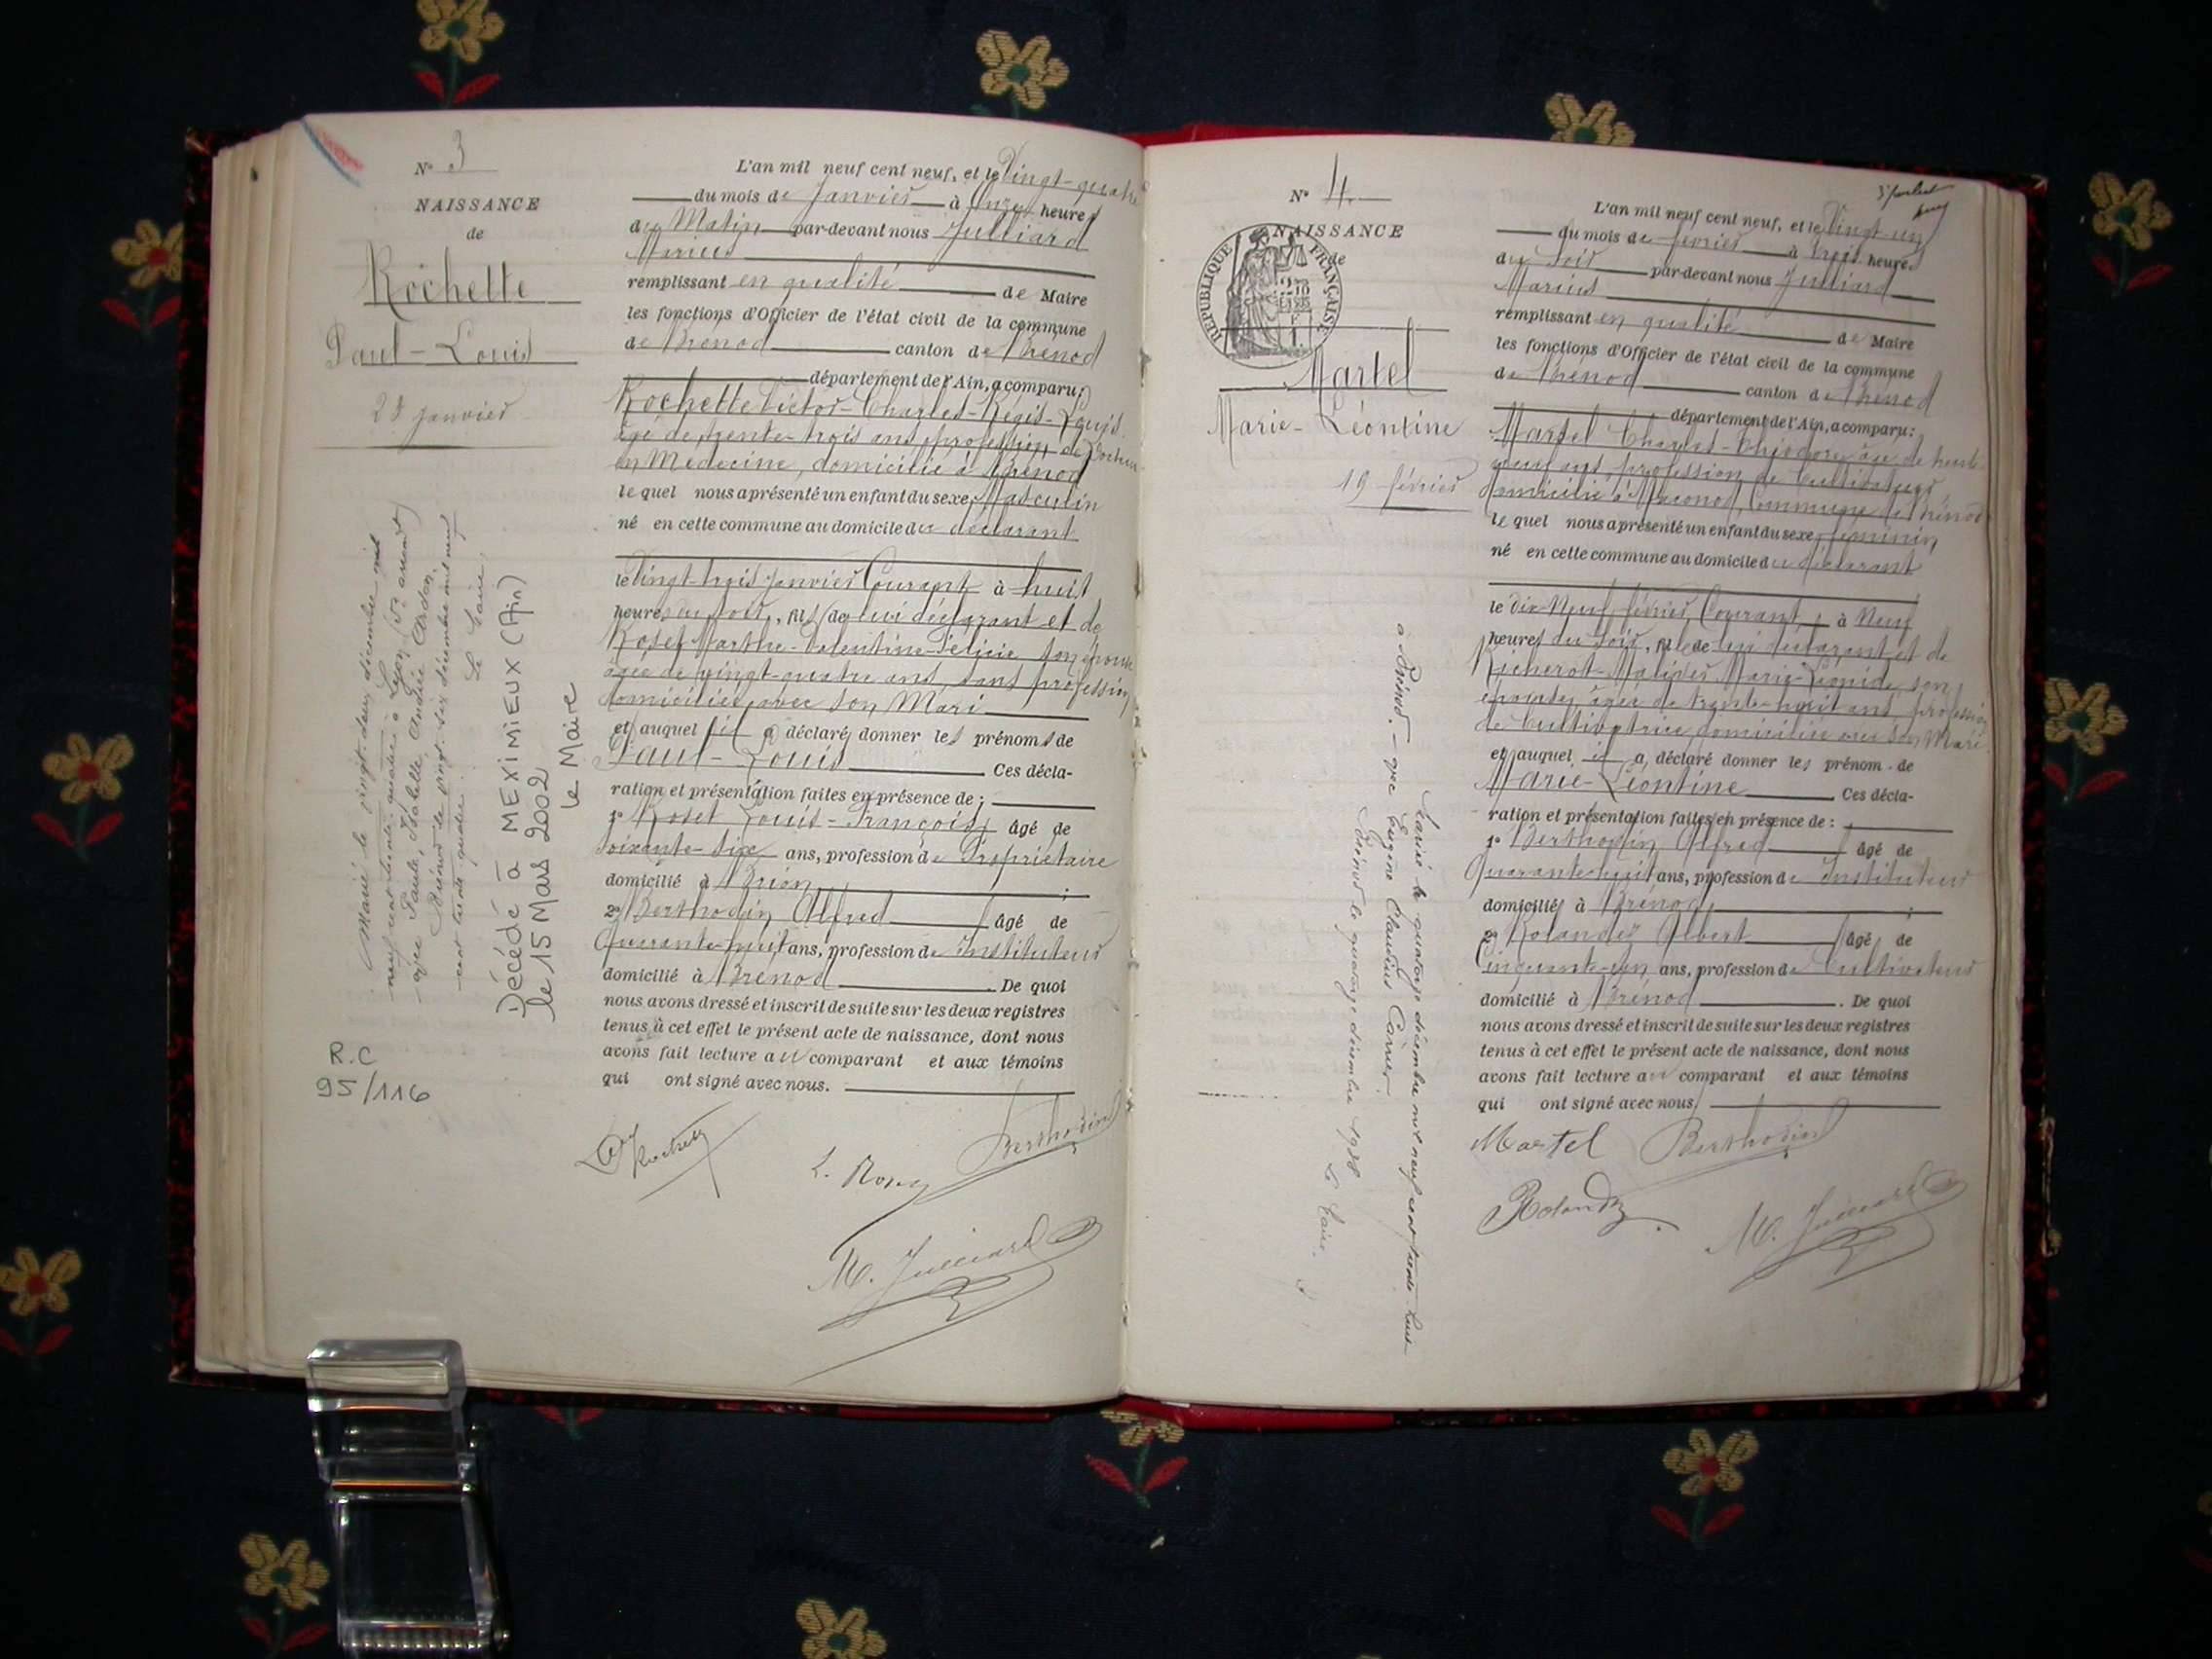 N° 3
NAISSANCE
de
Rochette
Paul-Louis
23 janvier
Marié le vingt-deux décembre mil
neuf cent trente-quatre à Lyon
avec Paule, Isabelle, Andrée Ardon.
Brénod le vingt-six décembre mil neuf
cent trente quatre.
Le Maire
Décédé à MEXIMIEUX (Ain)
le 15 Mars 2002
le Maire
R.C
95/116
L'an mil neuf cent neuf, et le Vingt-quatre
du mois de Janvier à Onze heures
du Matin par-devant nous Julliard
Marius
remplissant en qualité de Maire
les fonctions d'Officier de l'état civil de la commune
de Brénod canton de Brénod
département de l'Ain, a comparu:
Rochette Victor-Charles-Régis-Louis
âgé de trente-trois ans, profession de Docteur
en Médecine, domicilié à Brénod
le quel nous a présenté un enfant du sexe Masculin
né en cette commune au domicile du déclarant
le Vingt-trois Janvier Courant à huit
heures du soir, fils de lui déclarant et de
Rosset Marthe-Valentine-Félicie son épouse
âgée de vingt-quatre ans, sans profession
domiciliée avec son Mari
et auquel il a déclaré donner les prénoms de
Paul-Louis Ces décla-
ration et présentation faites en présence de:
1° Rosset Louis-François âgé de
Soixante-six ans, profession de Propriétaire
domicilié à Brion;
2° Berthodin Alfred âgé de
Quarante-huit ans, profession de Instituteur
domicilié à Brénod. De quoi
nous avons dressé et inscrit de suite sur les deux registres
tenus à cet effet le présent acte de naissance, dont nous
avons fait lecture au comparant et aux témoins
qui ont signé avec nous.
Rochette
Berthodin
M. Julliard
N° 4
NAISSANCE
de
RÉPUBLIQUE FRANÇAISE
Martel
Marie-Léontine
19 février
Mariée le quatorze décembre mil neuf cent trente huit
à Brénod - avec Eugène Claudius Carrier
Brénod le quatorze décembre 1938
Le Maire
L'an mil neuf cent neuf, et le Vingt-un
du mois de février à trois heures
du soir par-devant nous Julliard
Marius
remplissant en qualité de Maire
les fonctions d'Officier de l'état civil de la commune
de Brénod canton de Brénod
département de l'Ain, a comparu:
Martel Charles-Théodore âgé de trente-
neuf ans, profession de Cultivateur
domicilié à Maconod, Commune de Brénod
le quel nous a présenté un enfant du sexe féminin
né en cette commune au domicile du déclarant
le dix-Neuf février Courant, à Neuf
heures du soir, fille de lui déclarant et de
Marie-Léonide, son
épouse, âgée de trente-huit ans, profession
de Cultivatrice domiciliée avec son Mari
et auquel il a déclaré donner les prénom de
Marie-Léontine Ces décla-
ration et présentation faites en présence de:
1° Berthodin Alfred âgé de
Quarante-huit ans, profession de Instituteur
domicilié à Brénod;
2° Rolandez Albert âgé de
Cinquante-un ans, profession de Cultivateur
domicilié à Brénod. De quoi
nous avons dressé et inscrit de suite sur les deux registres
tenus à cet effet le présent acte de naissance, dont nous
avons fait lecture au comparant et aux témoins
qui ont signé avec nous.
Martel Berthodin
Rolandez
M. Julliard